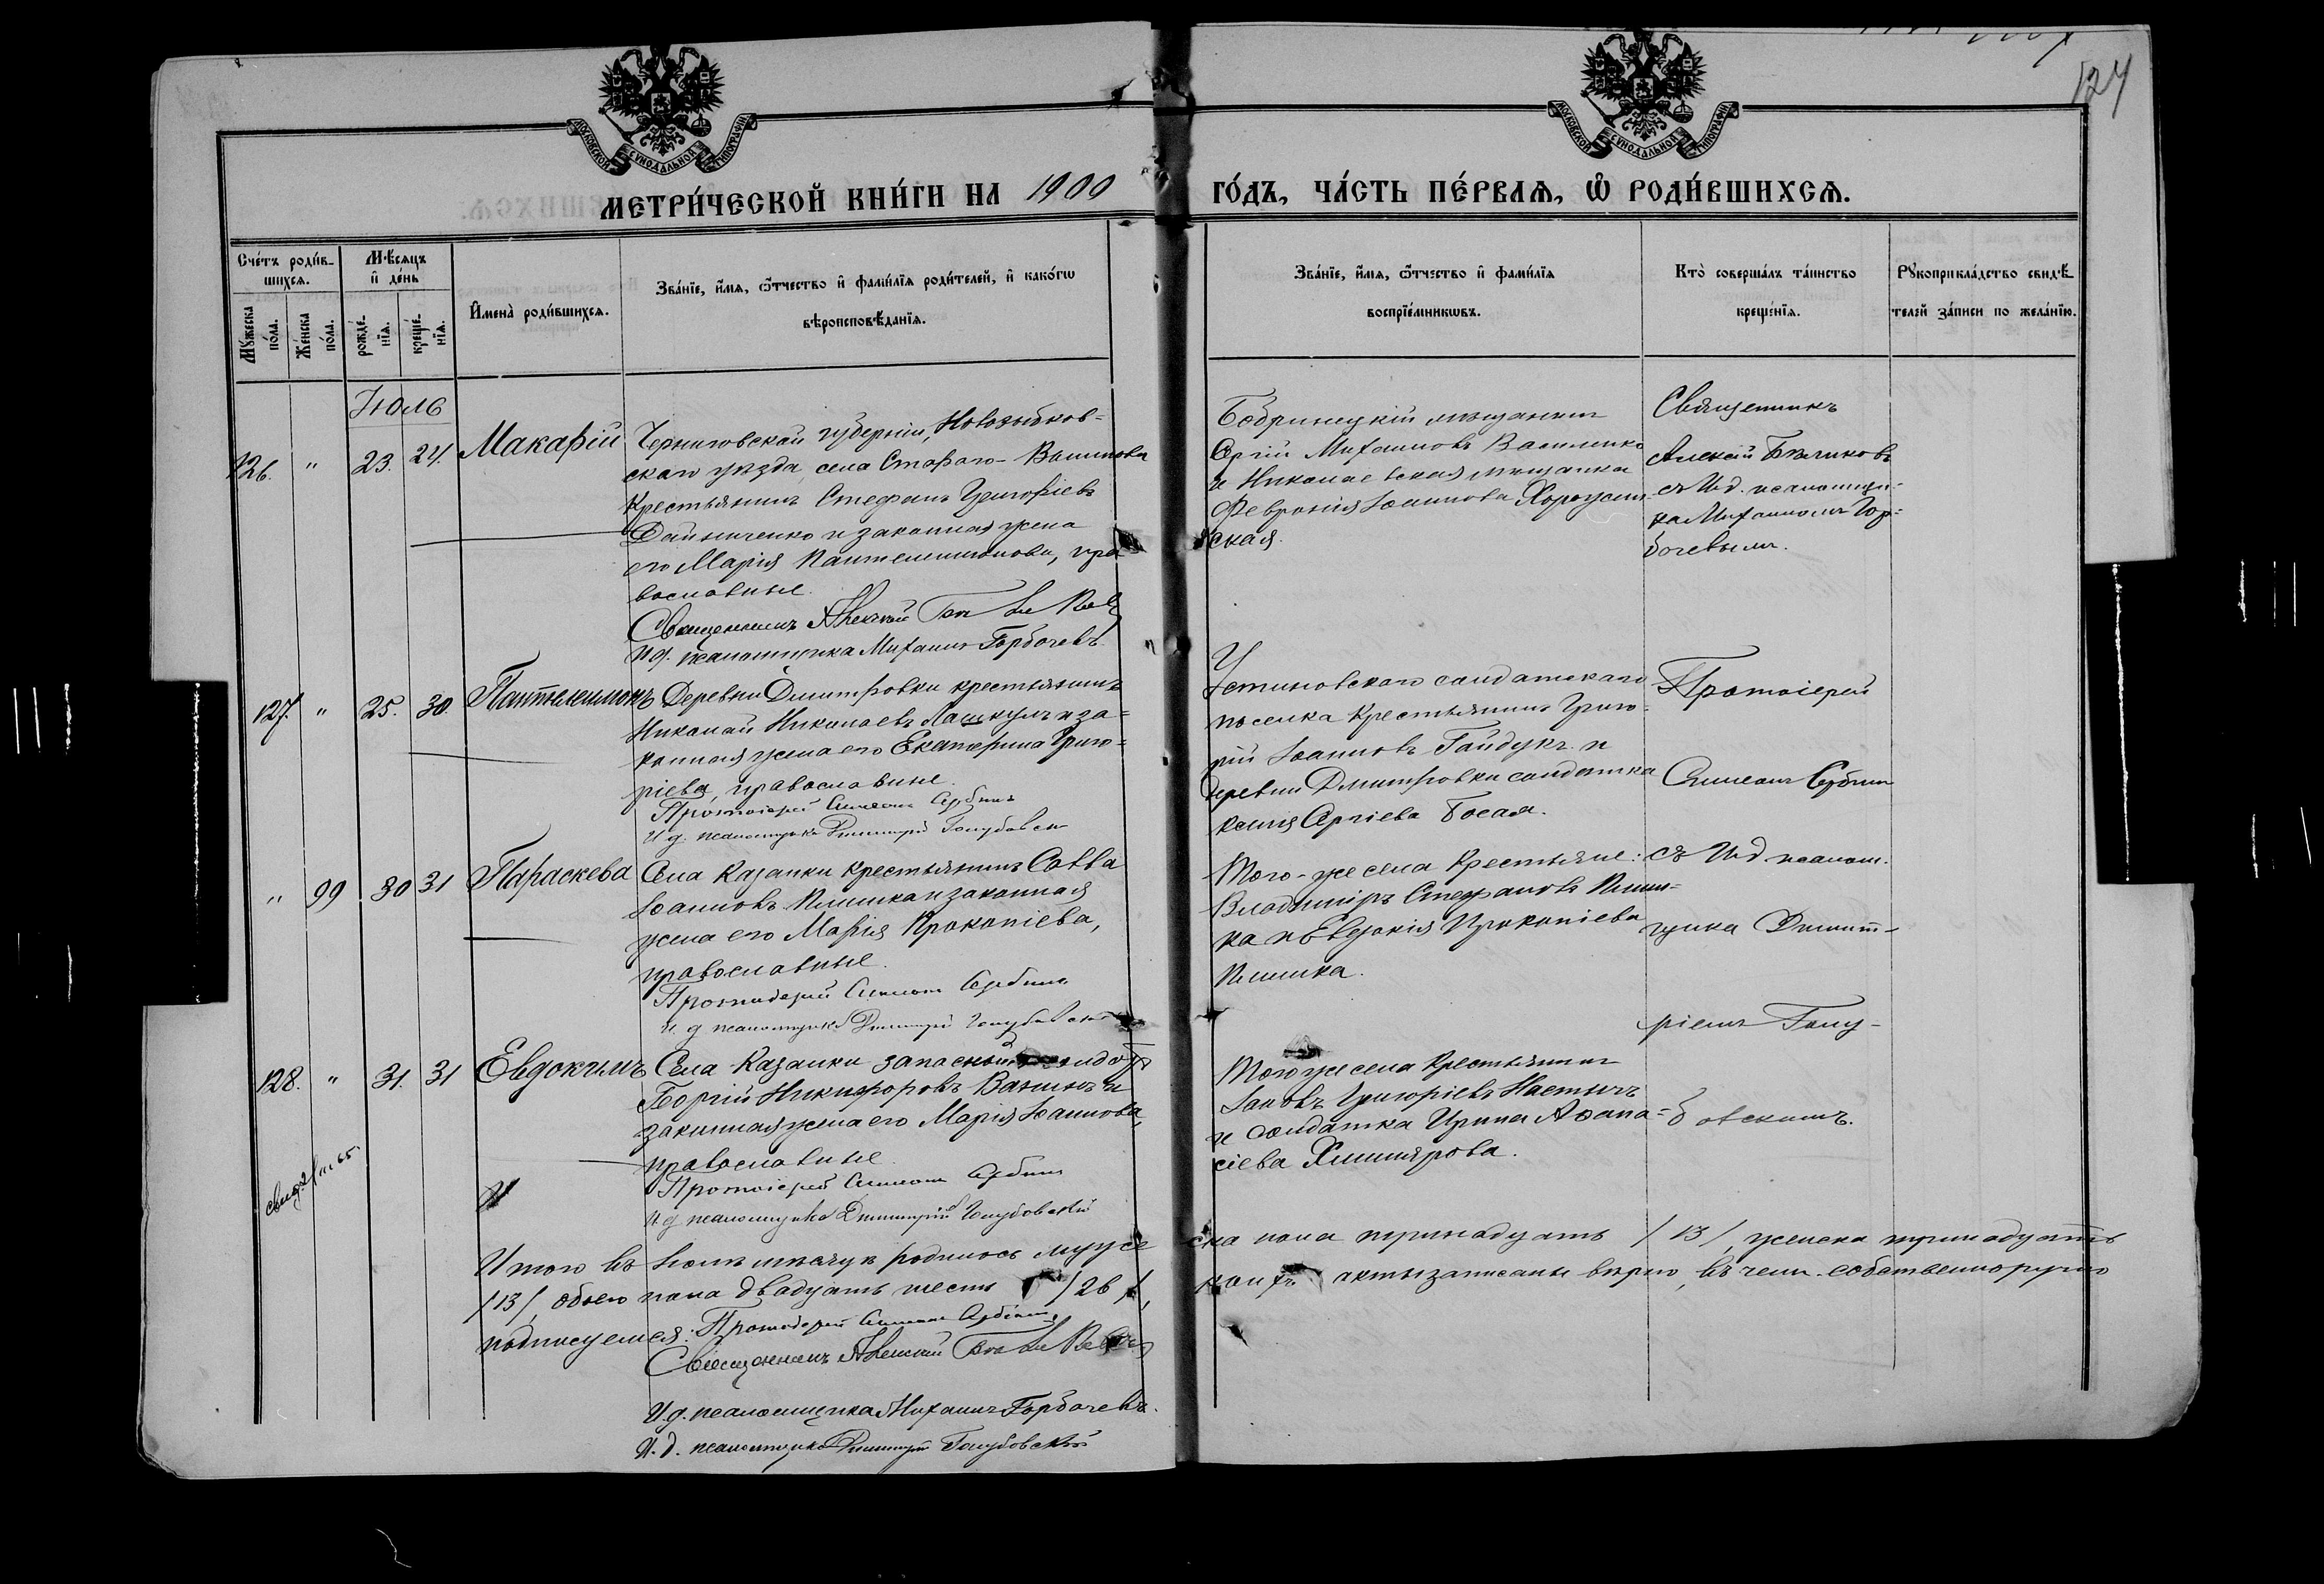 124
МОСКОВСКОЙ СѴНОДАЛЬНОЙ ТИПОГРАФІИ
МОСКОВСКОЙ СѴНОДАЛЬНОЙ ТИПОГРАФІИ
МЕТРИ́ЧЕСКОЙ КНИ́ГИ НА 1900 ГО́ДЪ, ЧА́СТЬ ПЕ́РВАѦ, Ѡ҆ РОДИ́ВШИХСѦ.
Сче́тъ роди́в-
шихсѧ.
Мꙋ́жеска по́ла.
Же́нска по́ла.
Мѣ́сѧцъ
и҆ де́нь
рожде́-
нїѧ.
креще́-
нїѧ.
И҆мена̀ роди́вшихсѧ.
Зва́нїе, и҆́мѧ, ѻ҆́тчество и҆ фами́лїѧ роди́телей, и҆ како́гѡ
вѣроисповѣ́данїѧ.
Зва́нїе, и҆́мѧ, ѻ҆́тчество и҆ фами́лїѧ
воспрїе́мникѡвъ.
Кто̀ соверша́лъ та́инство
креще́нїѧ.
Рꙋкоприкла́дство свидѣ́-
телей за́писи по жела́нїю.
Июль
126. " 23. 24. Макарій
Черниговской губерніи, Новозыбков-
скаго уѣзда, села Стараго-Вашкова
крестьянинъ Стефанъ Григоріевъ
Данченко и законная жена
его Марія Пантелеимонова, пра
вославные.
Священникъ Алексій
И д. псаломщика Михаилъ Горбачевъ
Бобринецкій мѣщанинъ
Сергій Михаиловъ Василенко
и Николаевская мѣщанка
Февронія Іоаннова
ская.
Священникъ
Алексій Бѣликовъ
съ И.д. псаломщи-
ка Михаиломъ Гор-
бачевымъ.
127. " 25. 30. Пантелеимонъ
Деревни Дмитровки крестьянинъ
Николай Николаевъ Лашкулъ и за-
конная жена его Екатерина Григо-
ріева, православные.
Протоіерей Симеонъ Сербинъ
И д. псаломщика Димитрій Голубовскій
Устиновскаго солдатскаго
поселка крестьянинъ Григо-
рій Іоанновъ Гайдукъ и
деревни Дмитровки солдатка
Ксенія Сергіева Босая.
Протоіерей
Симеонъ Сербинъ
" 99 30 31 Параскева
Села Казанки крестьянинъ Савва
Іоанновъ Клишка и законная
жена его Марія Прокопіева,
православные.
Протоіерей Симеонъ Сербинъ
И д псаломщика Димитрій Голубовскій
Того-же села крестьяне:
Владиміръ Стефановъ Клиш-
ка и Евдокія Прокопіева
Клишка.
съ И д псалом-
щика Димит-
ріемъ Голу-
128. " 31. 31 Евдокимъ
Села Казанки запасный солдатъ
Георгій Никифоровъ Ванинъ и
законная жена его Марія Іоаннова,
православные.
Протоіерей Симеонъ Сербинъ
И д псаломщика Димитрій Голубовскій
Того же села крестьянинъ
Іаковъ Григоріевъ
и солдатка Ирина Аѳана-
сіева
бовскимъ.
Итого въ Іюлѣ мѣсяцѣ родилось муже
ска пола тринадцать /13/, женска тринадцать
/13/, обоего пола двадцать шесть /26/,
акты записаны вѣрно, въ чемъ собственноручно
подписуемся: Протоіерей Симеонъ Сербинъ
Священникъ Алексій
И.д. псаломщика Михаилъ Горбачевъ.
И. д. псаломщика Димитрій Голубовскій